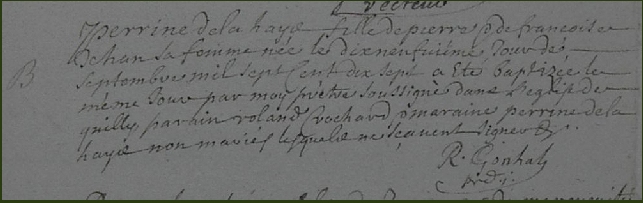 recteur
perrine de la haye fille de pierre & de francoise
B
Dehan sa femme née le dixneufiéme Jour de
septembre mil sept Cent dix sept a Eté baptizée le
méme Jour par moy prétre soussigné dans L'eglise de
quilly parain roland rochard & maraine perrine de la
haye non mariés lesquels ne sçauent signer
R. Gonhal